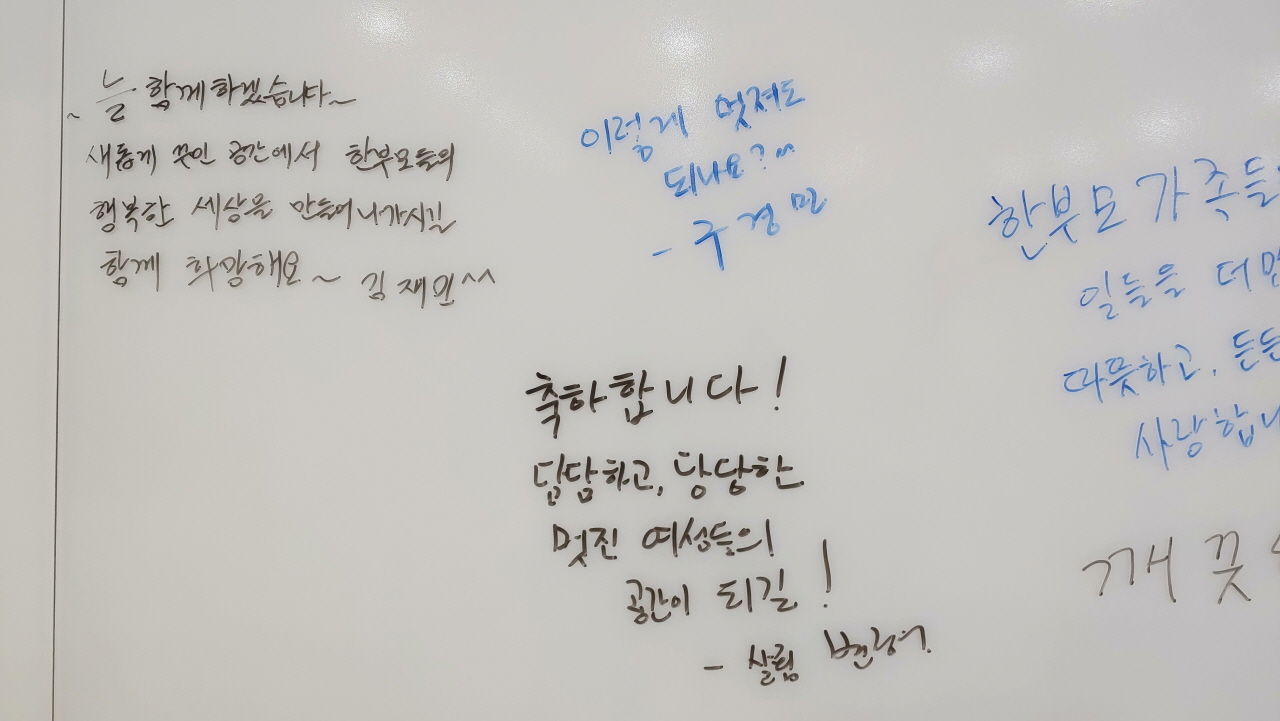 ~ 늘 함께하겠습니다~
새롭게 꾸민 공간에서 한부모들의
행복한 세상을 만들어나가시길
함께 희망해요~ 김재인^^
이렇게 멋져도
되나요?^^
- 구경민
축하합니다!
담담하고, 당당한
멋진 여성들의
공간이 되길!
- 살림
한부모가족들
일들을 더
따뜻하고, 든든
사랑합니
깨끗